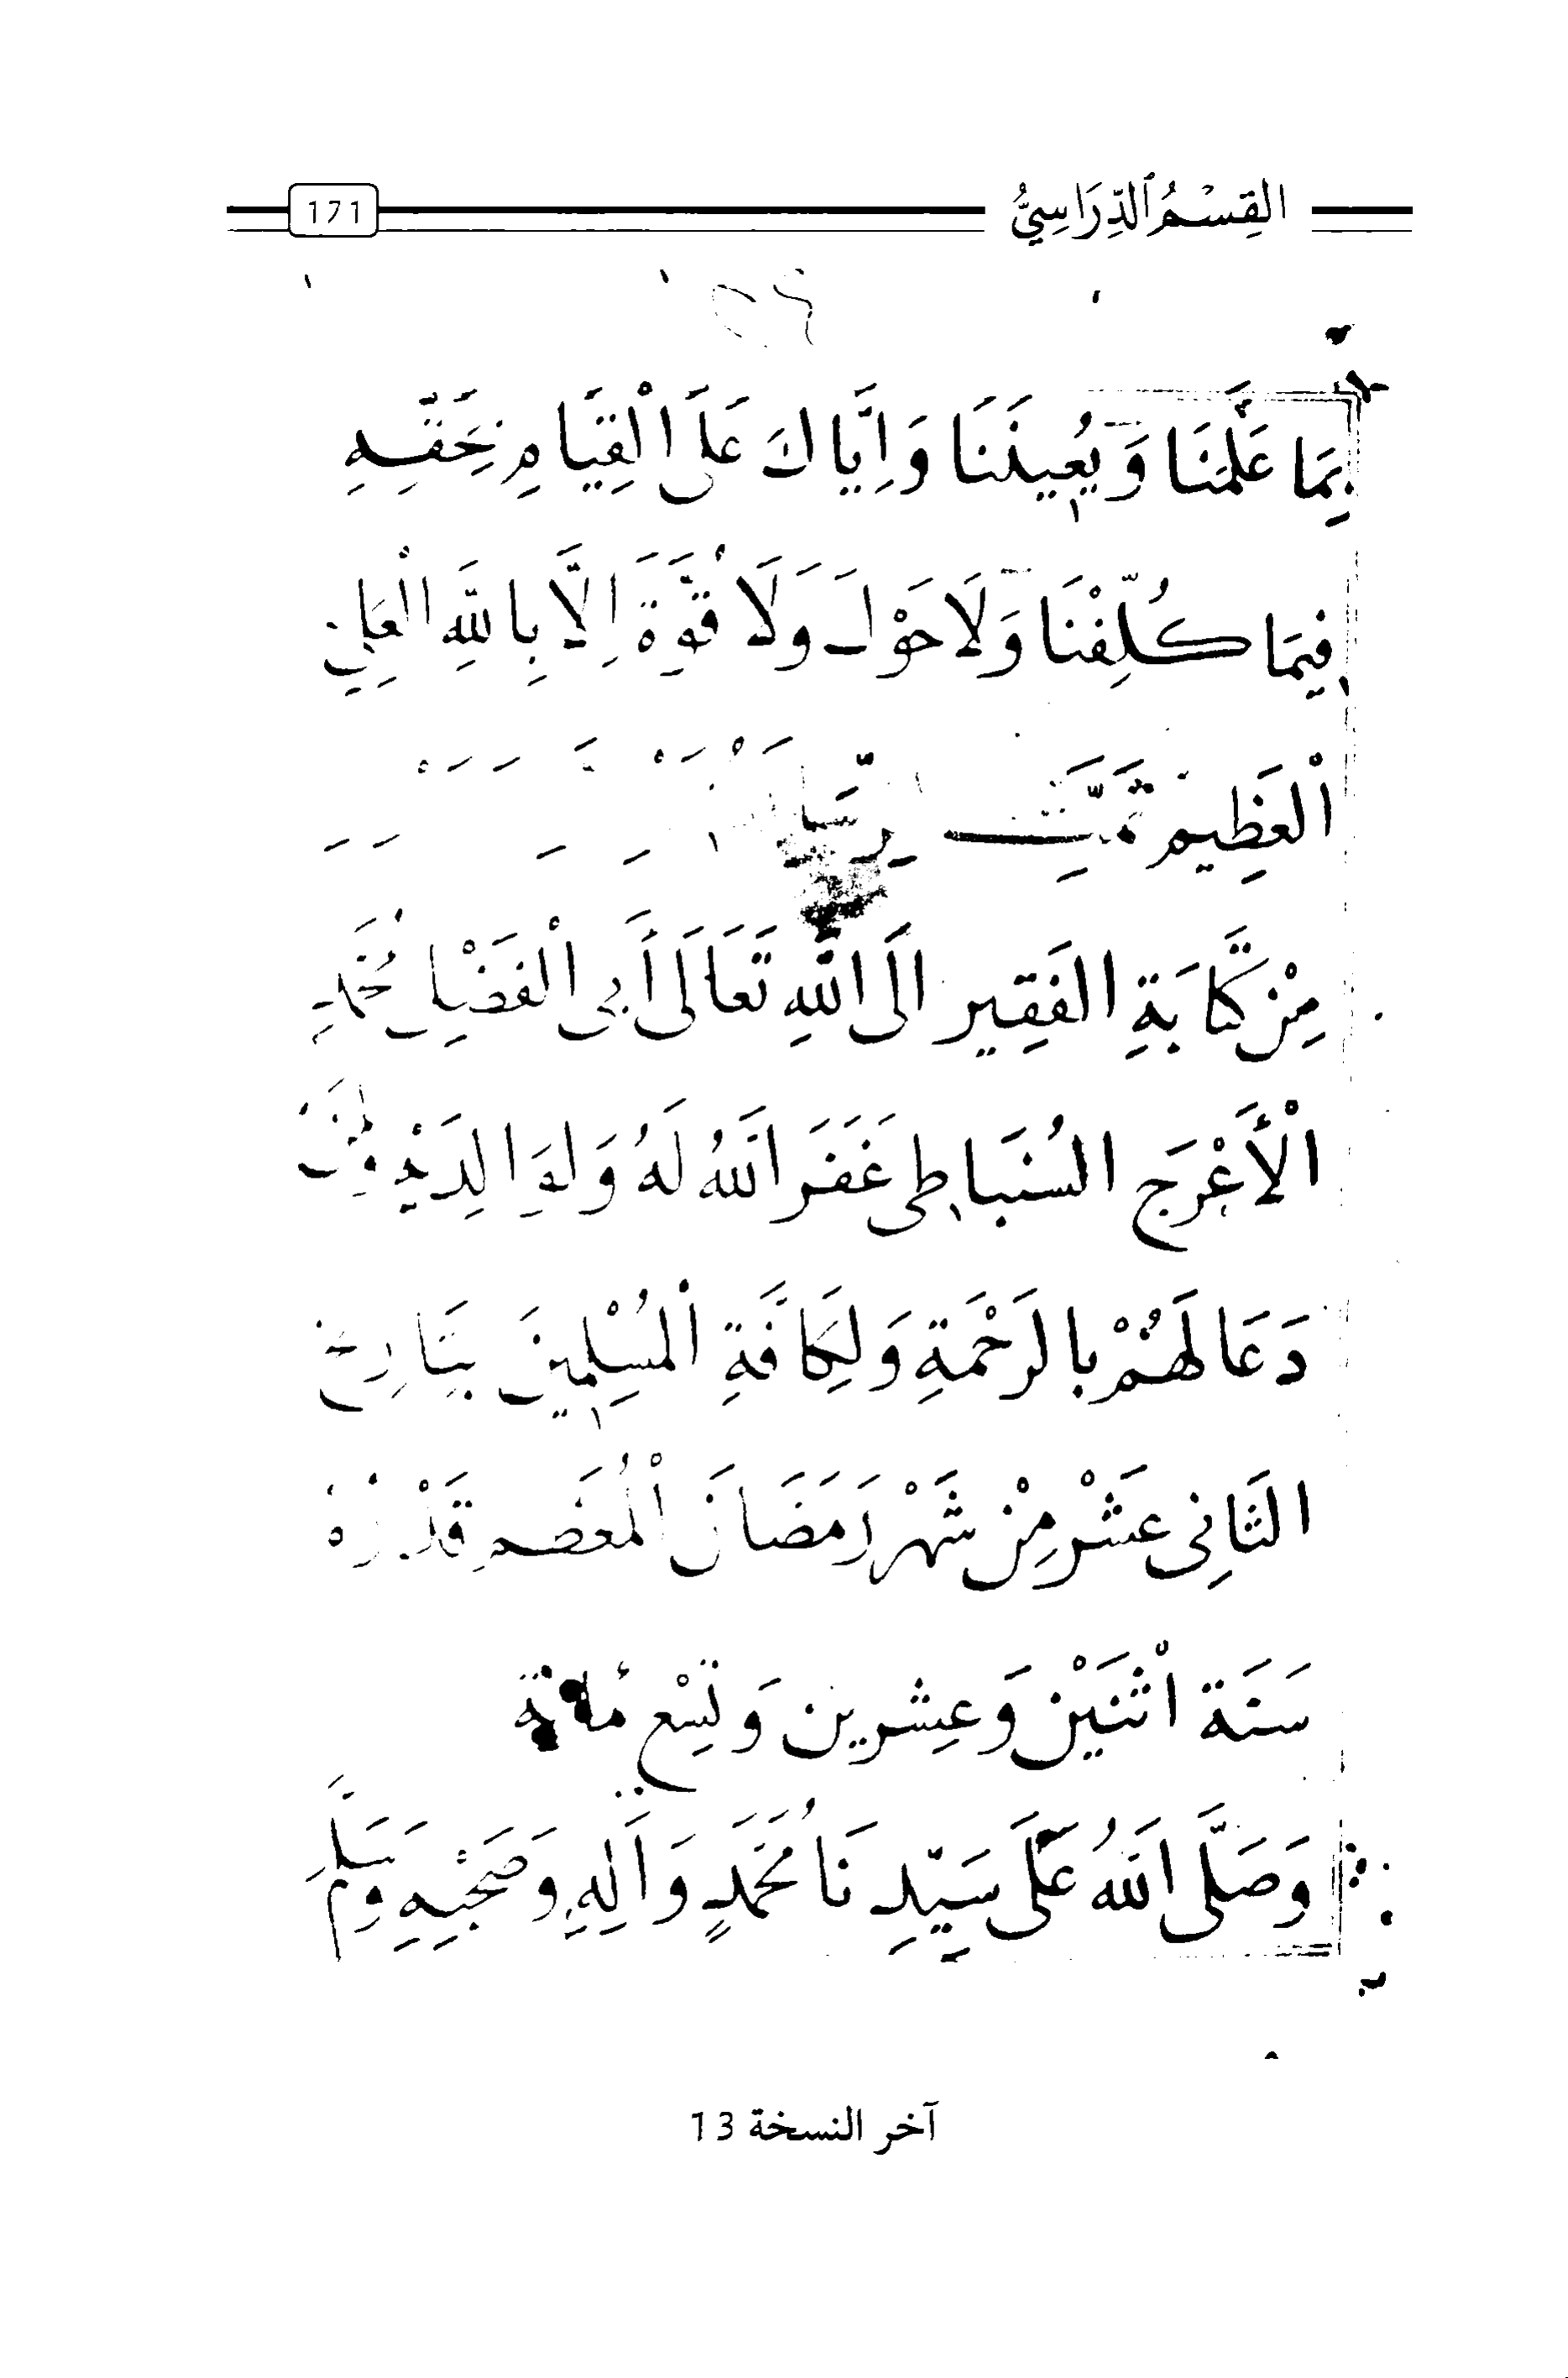 القِسْمُ الدِّرَاسِيُّ
171
بِمَا عَلَّمَنَا وَيُعِينَنَا وَاِيَّاكَ عَلَى الْقِيَامِ بِحَقِّهِ
فِيمَا كُلِّفْنَا وَلَا حَوْلَ وَلَا قُوَّةَ اِلَّا بِاللَّهِ الْعَلِيِّ
الْعَظِيمِ تَمَّتِ
مِنْ كِتَابَةِ الفَقِيرِ اِلَى اللَّهِ تَعَالَى أَبِي الْفَضْلِ مُحَمَّدِ
الْأَعْرَجِ السُنْبَاطِي غَفَرَ اللَّهُ لَهُ وَلِوَالِدَيْهِ وَلِمَنْ
دَعَا لَهُمْ بِالرَحْمَةِ وَلِكَافَّةِ الْمُسْلِمِينَ بِتَارِيخِ
الثَانِي عَشْر مِنْ شَهْرِ رَمَضَانَ الْمُعَضَمِ قَدْرُهُ
سَنَة اثْنَيْنِ وَعِشرين وَتِسْع مائة
وَصَلَّى اللَّهُ عَلَى سَيِّدِنَا مُحَمَّدٍ وَآلِهِ وَصَحْبِهِ وَسَلَّمَ
آخر النسخة 13